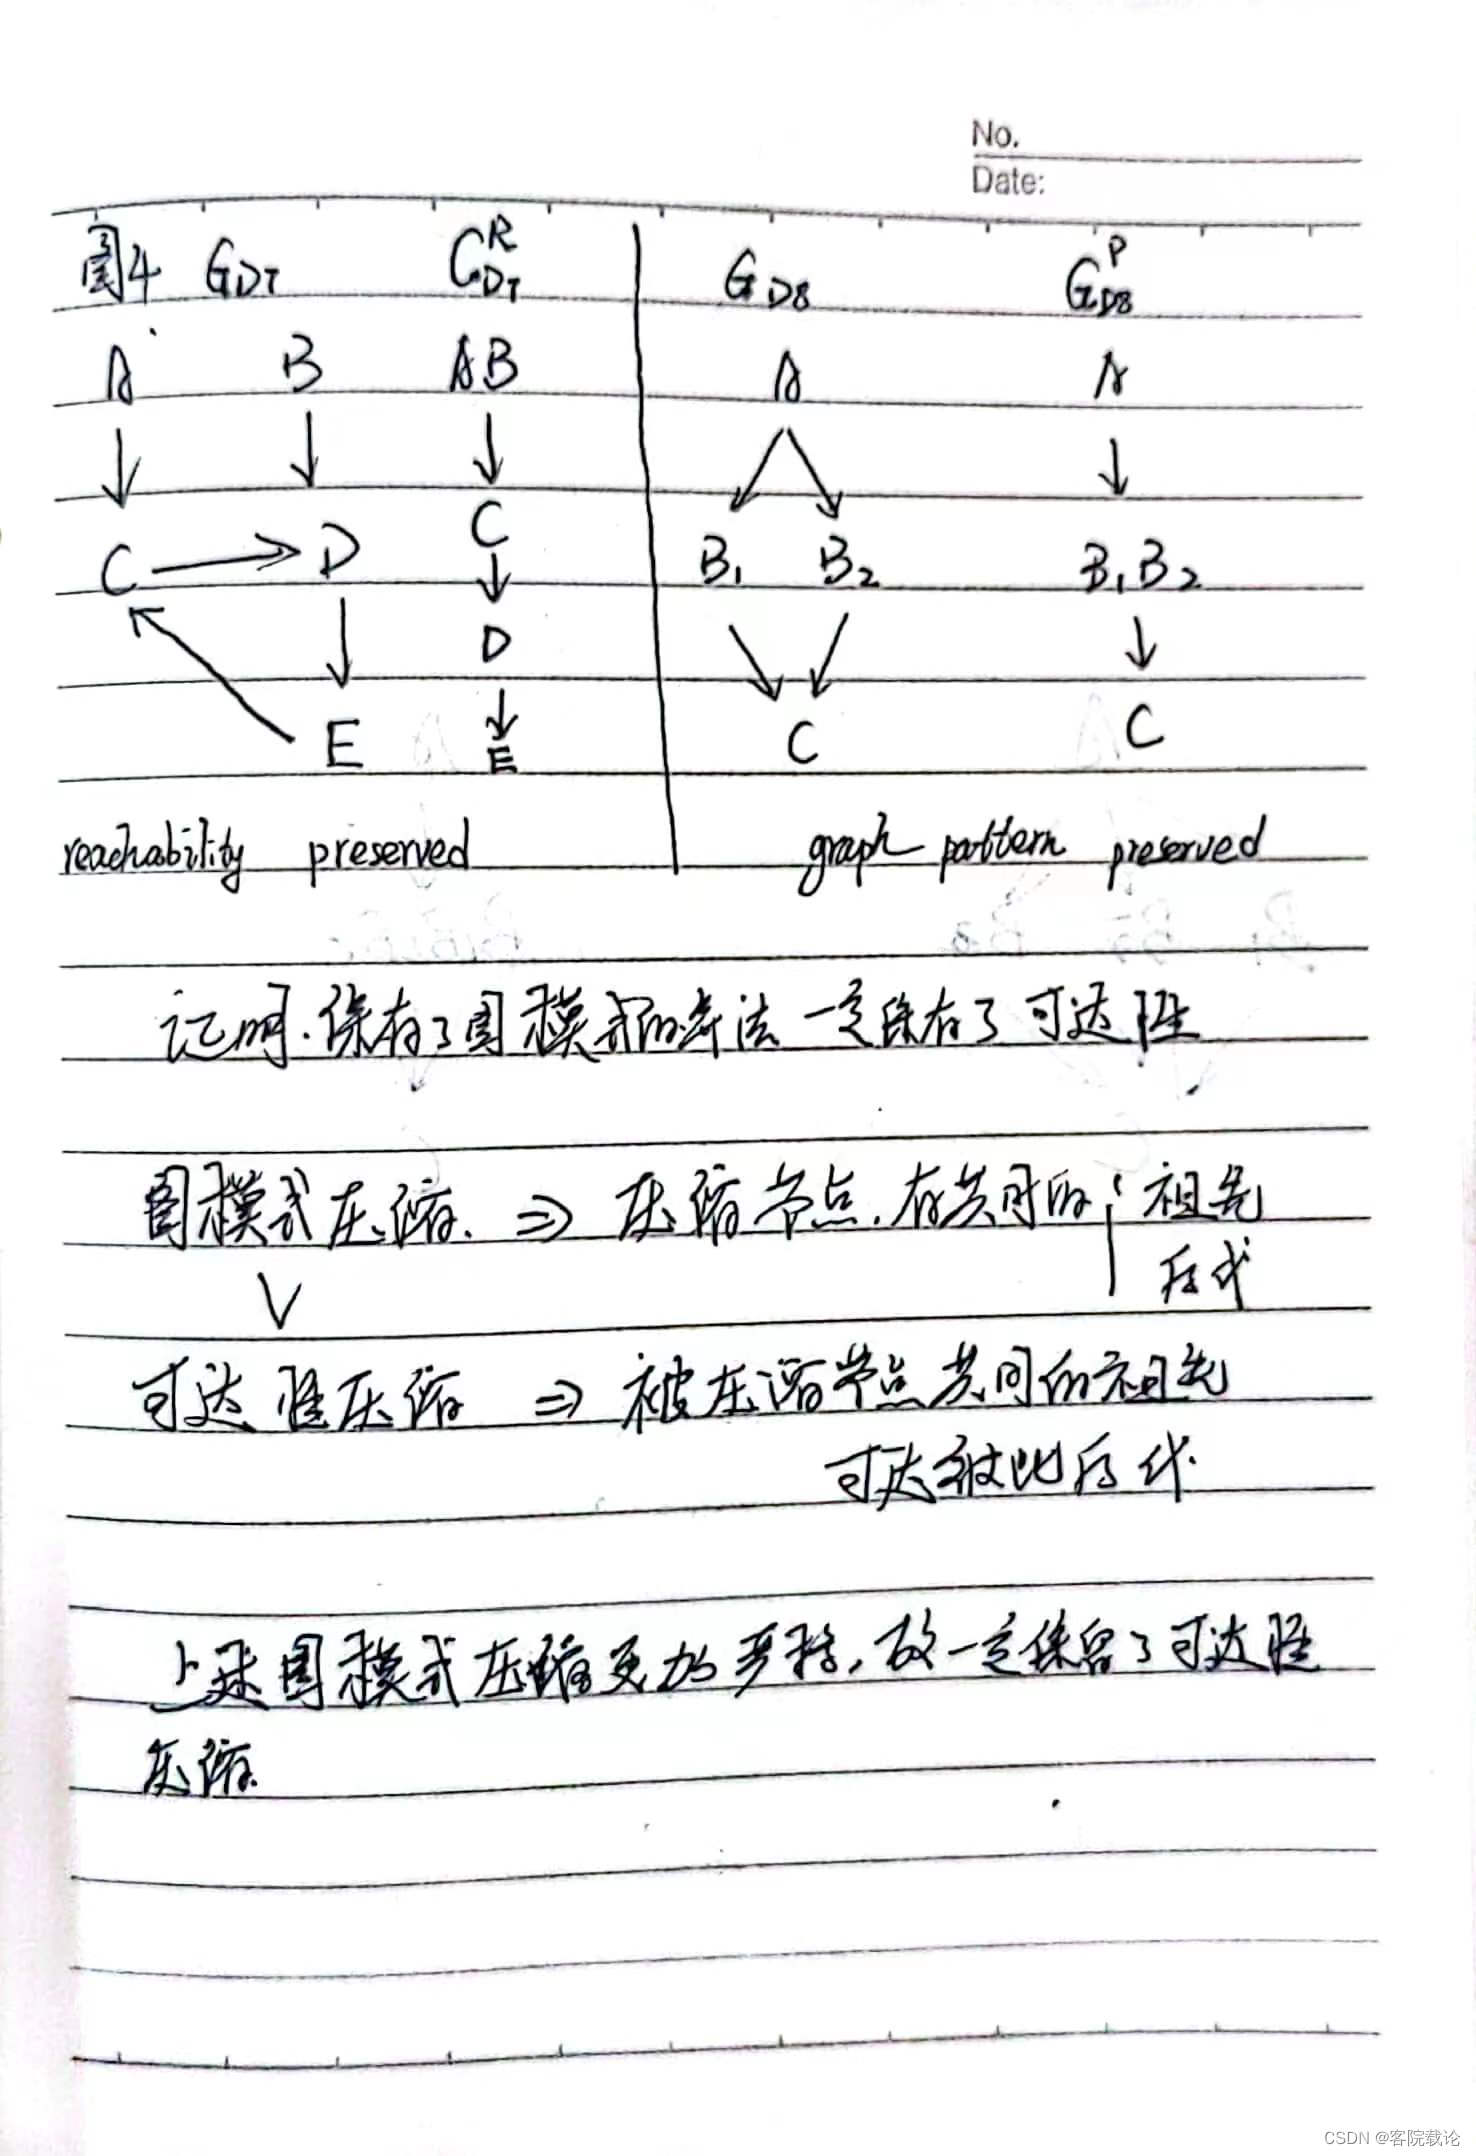 No.
Date:
图4 G_D7 G^R_D7 G_D8 G^P_D8
A B AB A A
C D C B₁ B₂ B₁B₂
D
E E C C
reachability preserved graph pattern preserved
证明.保存了图模式的算法一定保存了可达性
图模式压缩. ⇒ 压缩节点.有共同的 祖先
后代
V
可达性压缩 ⇒ 被压缩节点共同的祖先
可达彼此后代.
上述图模式压缩更加严格,故一定保留了可达性
压缩.
CSDN @客院载论